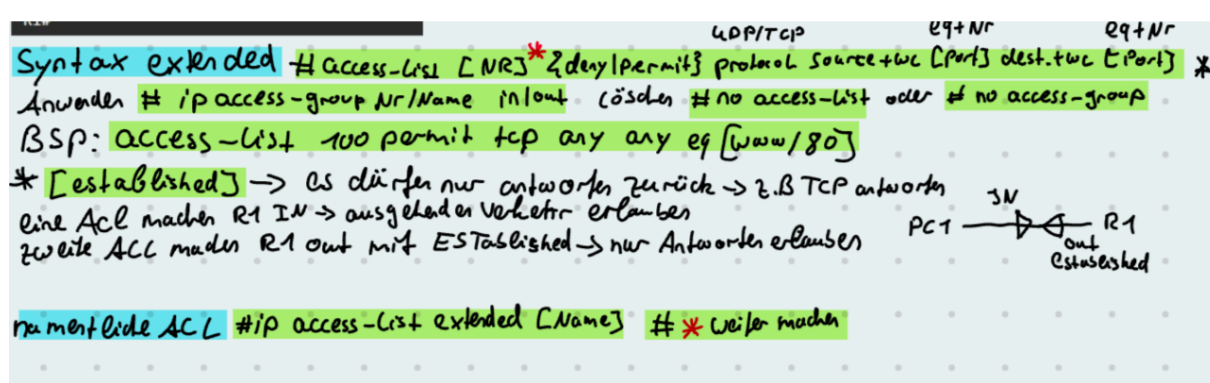 R1#
UDP/TCP eq+Nr eq+Nr
Syntax extended # access-list [NR]* {deny|permit} protocol source+wc [Port] dest.+wc [Port] *
Anwenden # ip access-group Nr/Name in/out löschen # no access-list oder # no access-group
BSP: access-list 100 permit tcp any any eq [www/80]
* [established] -> es dürfen nur antworten zurück -> z.B TCP antworten
eine Acl machen R1 IN -> ausgehenden Verkehr erlauben
zweite ACL machen R1 out mit ESTablished -> nur Antworten erlauben
IN
PC1 R1
out
established
namentliche ACL #ip access-list extended [Name] # * weiter machen